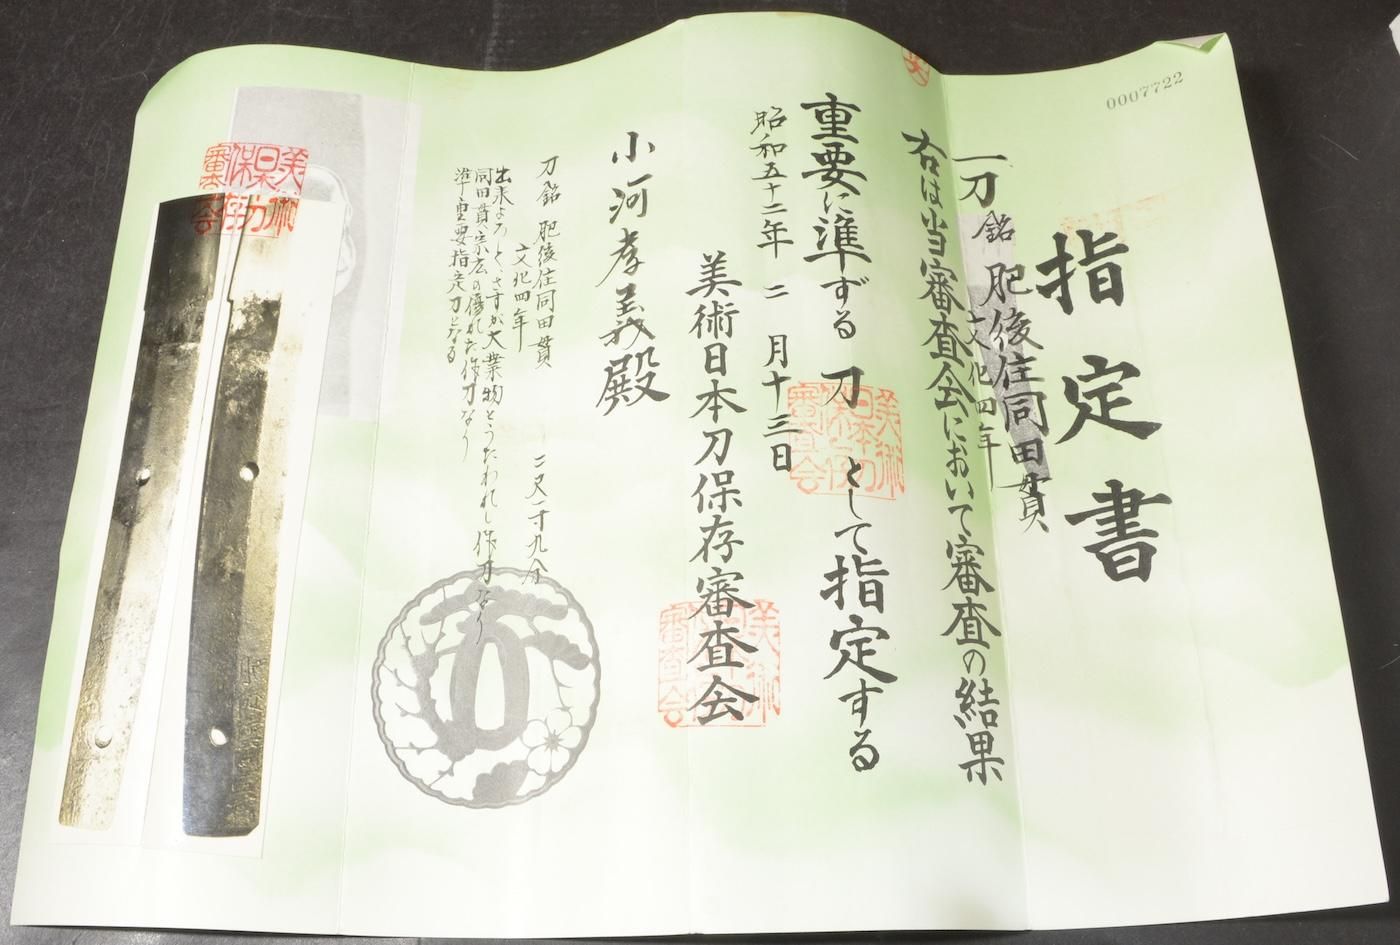 0007722
指定書
一刀 銘 肥後住同田貫
文化四年
右は当審査会において審査の結果
重要に準ずる刀として指定する
昭和五十二年二月十三日
美術日本刀保存審査会
小河孝義殿
刀 銘 肥後住同田貫 二尺一寸九分
文化四年
出来よろしと、さすが大業物とうたわれし作刀なり
同田貫宗広の優れた作刀なり
準重要指定刀となる